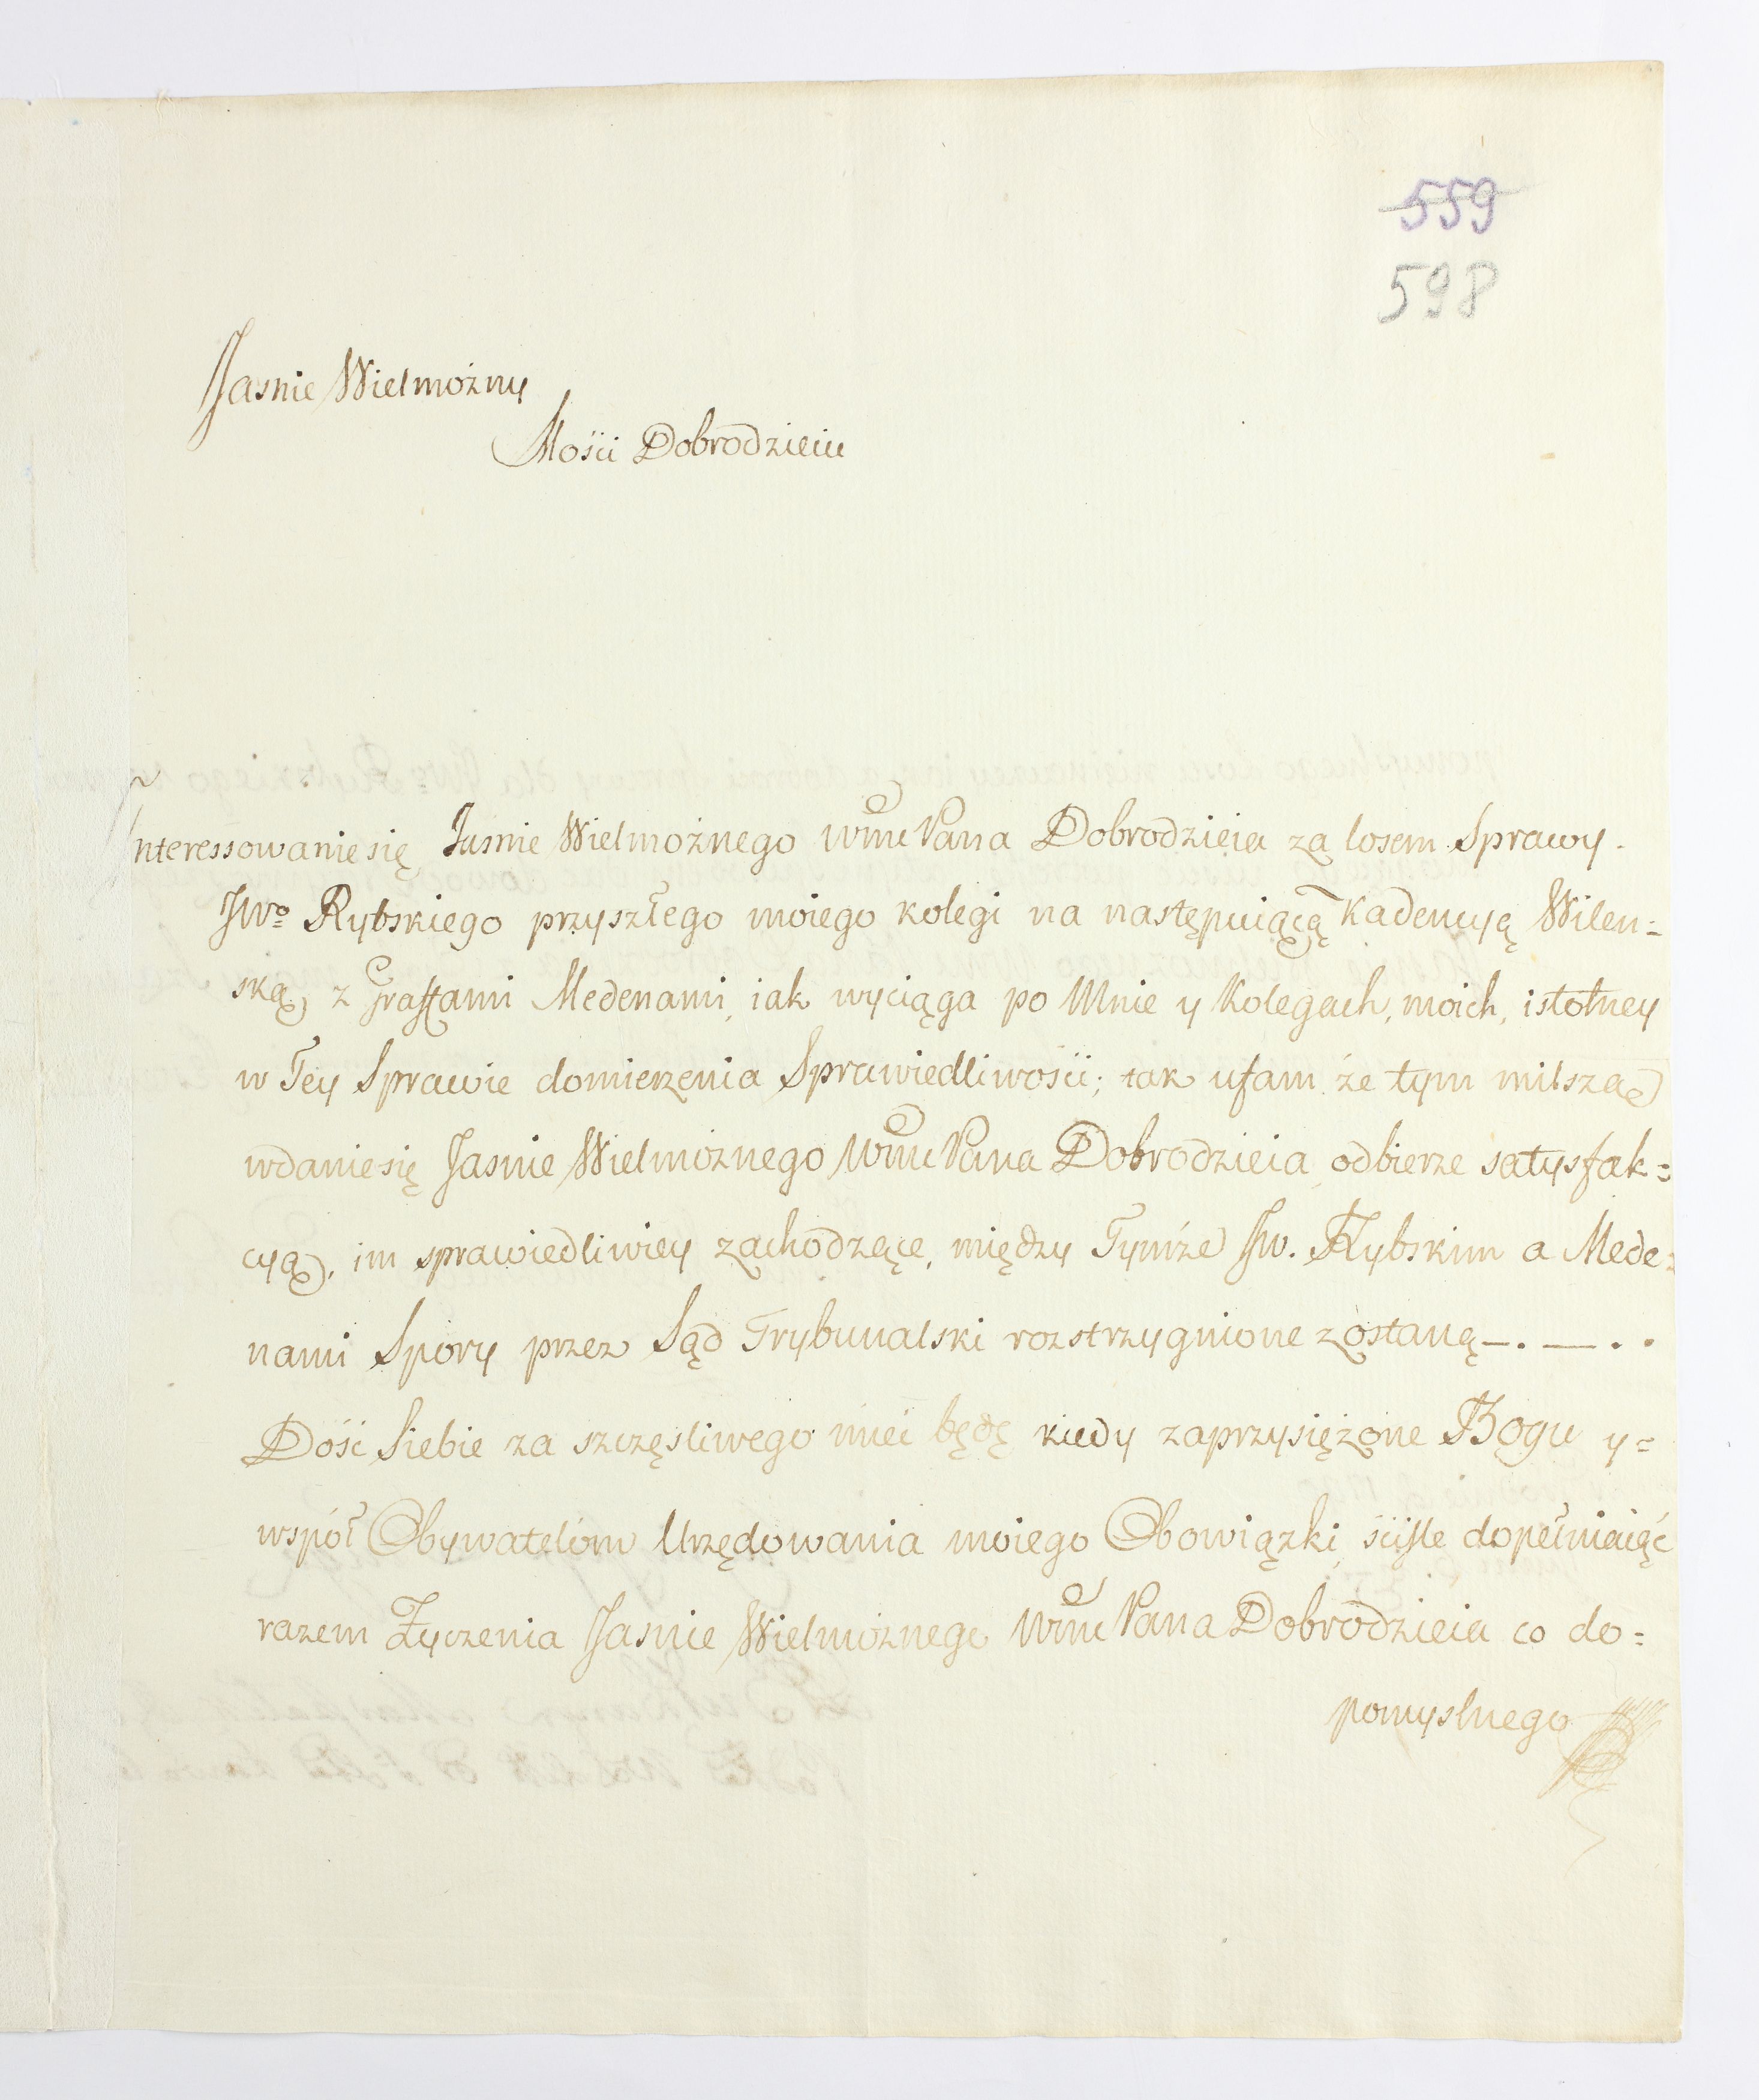 559
598
Jasnie Wielmożny
Mości Dobrodzieiu
Interessowanie się Jasnie Wielmożnego WmcPana Dobrodzieia za losem Sprawy
JWo Rybskiego przyszłego moiego kolegi na następuiącą Kadencyą Wilen=
ską, z Graffami Medenami, iak wyciąga po Mnie y Kolegach, moich, istotney
w Tey Sprawie domierzenia Sprawiedliwości; tak ufam że tym milszą
wdanie się Jasnie Wielmożnego WmcPana Dobrodzieia odbierze satysfak=
cyą, im sprawiedliwiey zachodzące, między Tymże JW. Rybskim a Mede=
nami Spory przez Sąd Trybunalski rozstrzygnione zostaną—. —. .
Dość Siebie za szczęśliwego mieć będę kiedy zaprzysiężone Bogu y=
współ Obywatelom Urzędowania moiego Obowiązki ściśle dopełniaiąc
razem Życzenia Jasnie Wielmożnego WmcPana Dobrodzieia co do=
pomyslnego